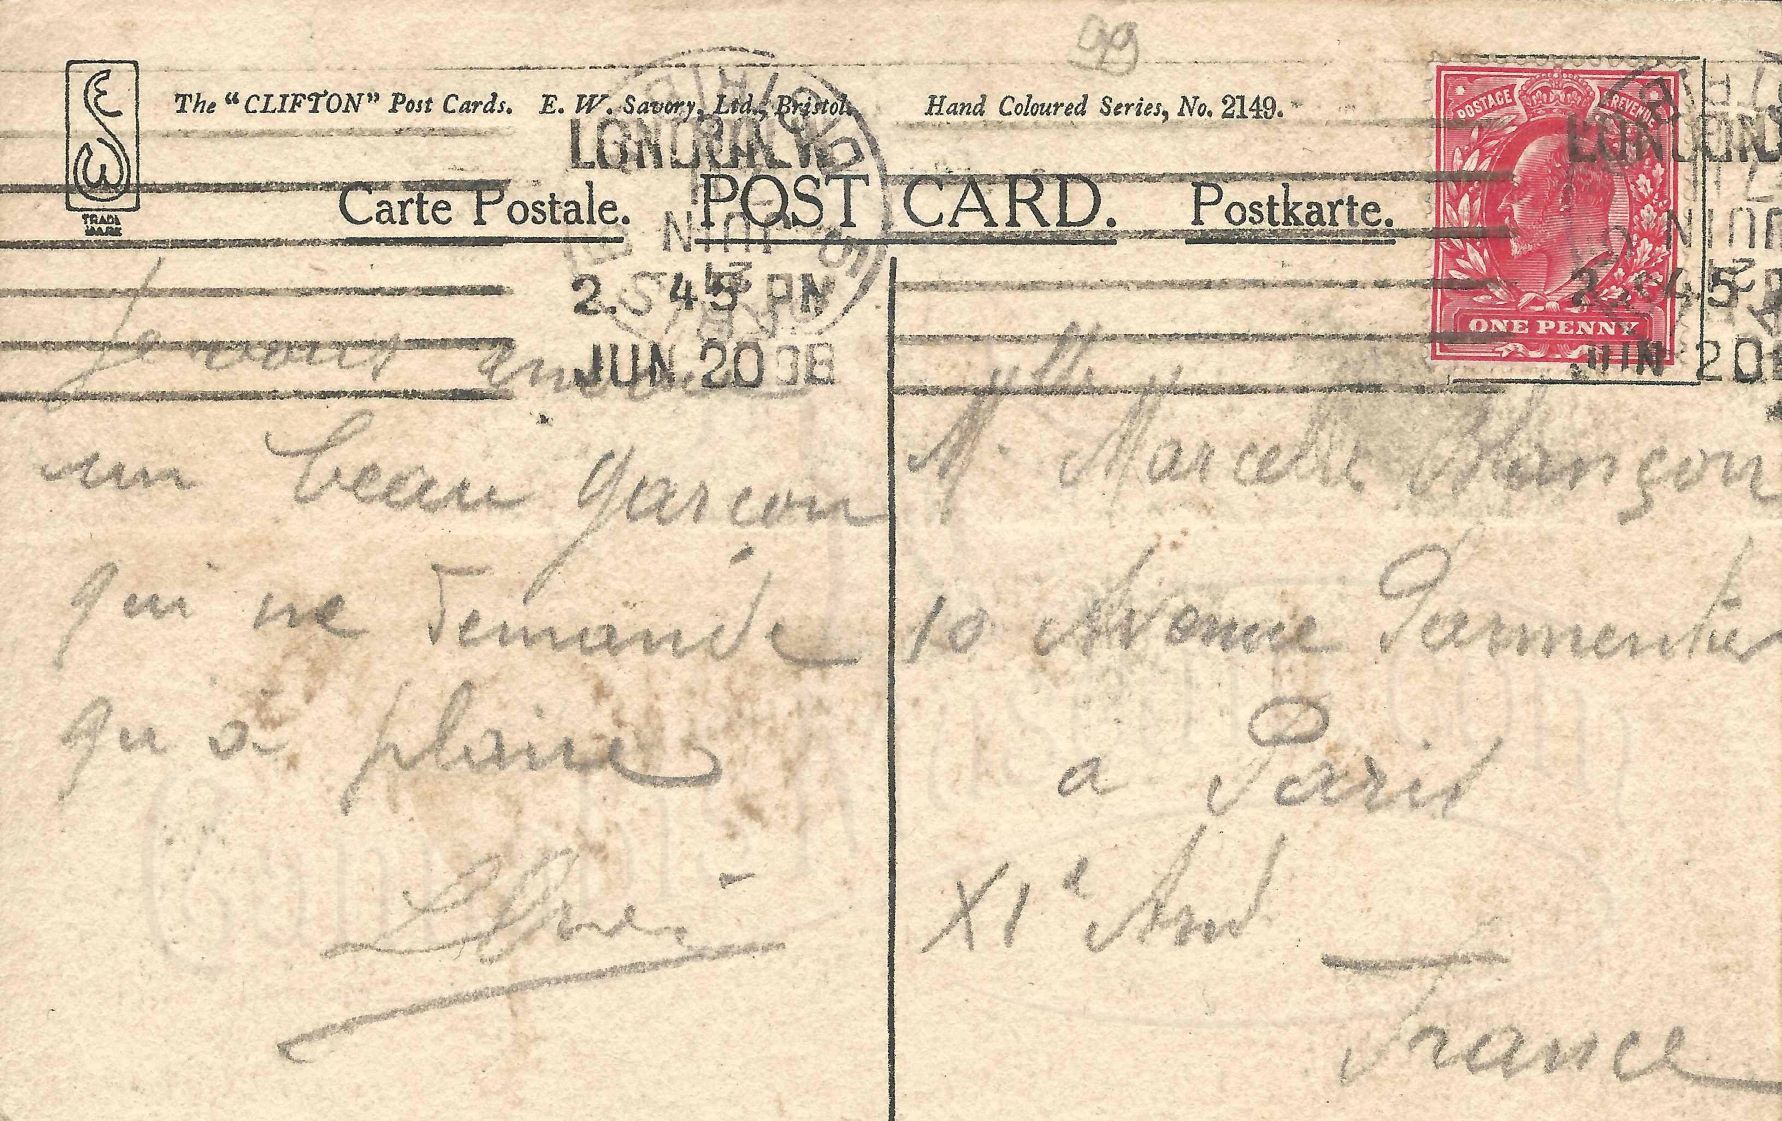 99
The "CLIFTON" Post Cards. E. W. Savory, Ltd., Bristol. Hand Coloured Series, No. 2149.
TRADE MARK
Carte Postale. POST CARD. Postkarte.
POSTAGE & REVENUE
ONE PENNY
LONDON.W
2. 45 PM
JUN 20 08
LONDON
2. 45 P
JUN 20
DISTRIBUTION
PARIS
JUIN
Je vous envoie
un beau garçon
qui ne demande
qu'à plaire
Mlle Marcelle Blançon
10 Avenue Parmentier
a Paris
XIe Ard
France